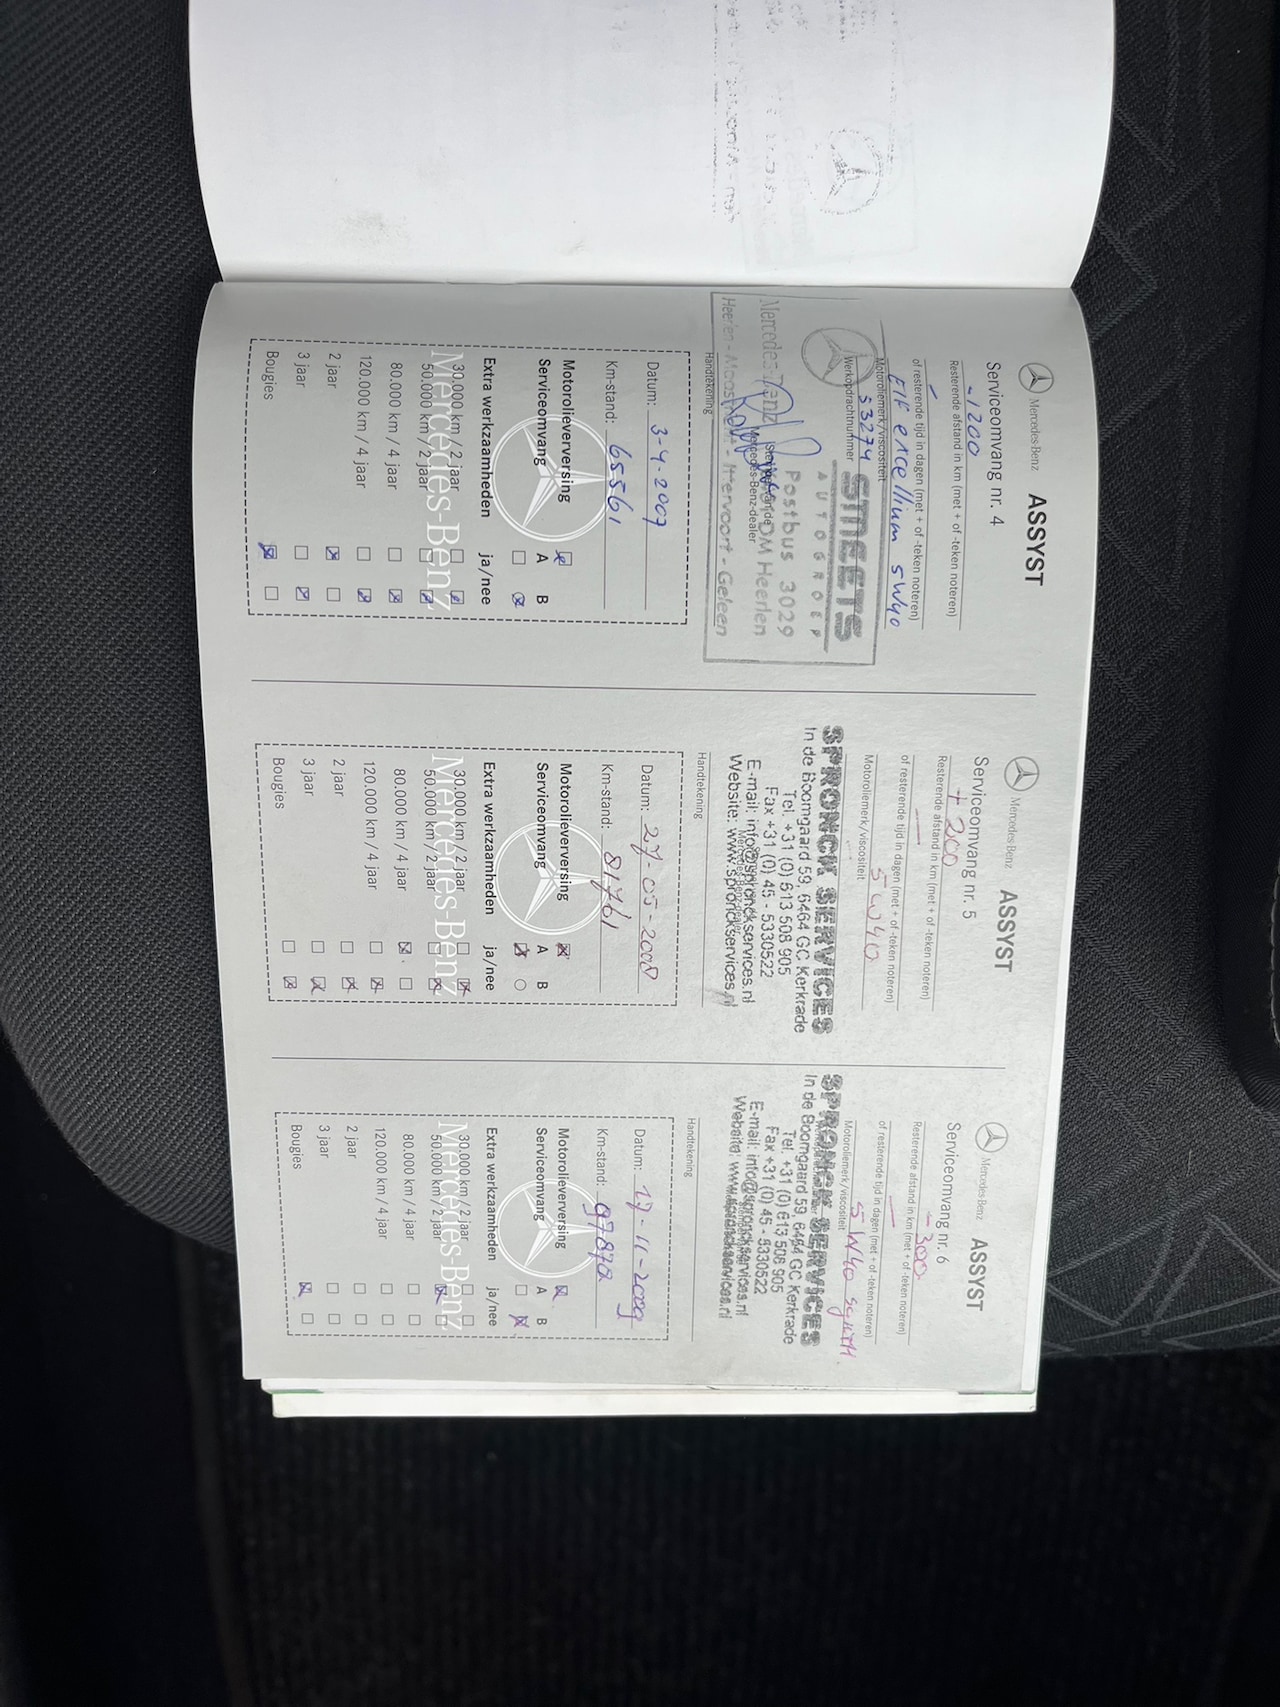 Mercedes-Benz
ASSYST
Serviceomvang nr. 4
-1200
Resterende afstand in km (met + of -teken noteren)
of resterende tijd in dagen (met + of -teken noteren)
Elf excellium 5W40
Motoroliemerk/viscositeit
53274
Werkopdrachtnummer
SMEETS
AUTOGROEP
Mercedes-Benz
Postbus 3029
DM Heerlen
Mercedes-Benz-dealer
Heerlen - Maastricht - Ittervoort - Geleen
Handtekening
Datum: 3-4-2007
Km-stand: 65561
Motorolieverversing
A B
Serviceomvang
Extra werkzaamheden ja/nee
30.000 km / 2 jaar
50.000 km / 2 jaar
Mercedes-Benz
80.000 km / 4 jaar
120.000 km / 4 jaar
2 jaar
3 jaar
Bougies
Mercedes-Benz
ASSYST
Serviceomvang nr. 5
+ 200
Resterende afstand in km (met + of -teken noteren)
of resterende tijd in dagen (met + of -teken noteren)
5W40
Motoroliemerk/viscositeit
SPRONCK SERVICES
In de Boomgaard 59, 6464 GC Kerkrade
Tel. +31 (0) 613 508 905
Fax +31 (0) 45 - 5330522
E-mail: info@spronckservices.nl
Mercedes-Benz-dealer
Website: www.spronckservices.nl
Handtekening
Datum: 27-05-2008
Km-stand: 81761
Motorolieverversing
A B
Serviceomvang
Extra werkzaamheden ja/nee
30.000 km / 2 jaar
50.000 km / 2 jaar
Mercedes-Benz
80.000 km / 4 jaar
120.000 km / 4 jaar
2 jaar
3 jaar
Bougies
Mercedes-Benz
ASSYST
Serviceomvang nr. 6
-300
Resterende afstand in km (met + of -teken noteren)
of resterende tijd in dagen (met + of -teken noteren)
5W40 synth.
Motoroliemerk/viscositeit
SPRONCK SERVICES
In de Boomgaard 59, 6464 GC Kerkrade
Tel. +31 (0) 613 508 905
Fax +31 (0) 45 - 5330522
E-mail: info@spronckservices.nl
Website: www.spronckservices.nl
Handtekening
Datum: 17-11-2009
Km-stand: 97870
Motorolieverversing
A B
Serviceomvang
Extra werkzaamheden ja/nee
30.000 km / 2 jaar
50.000 km / 2 jaar
Mercedes-Benz
80.000 km / 4 jaar
120.000 km / 4 jaar
2 jaar
3 jaar
Bougies